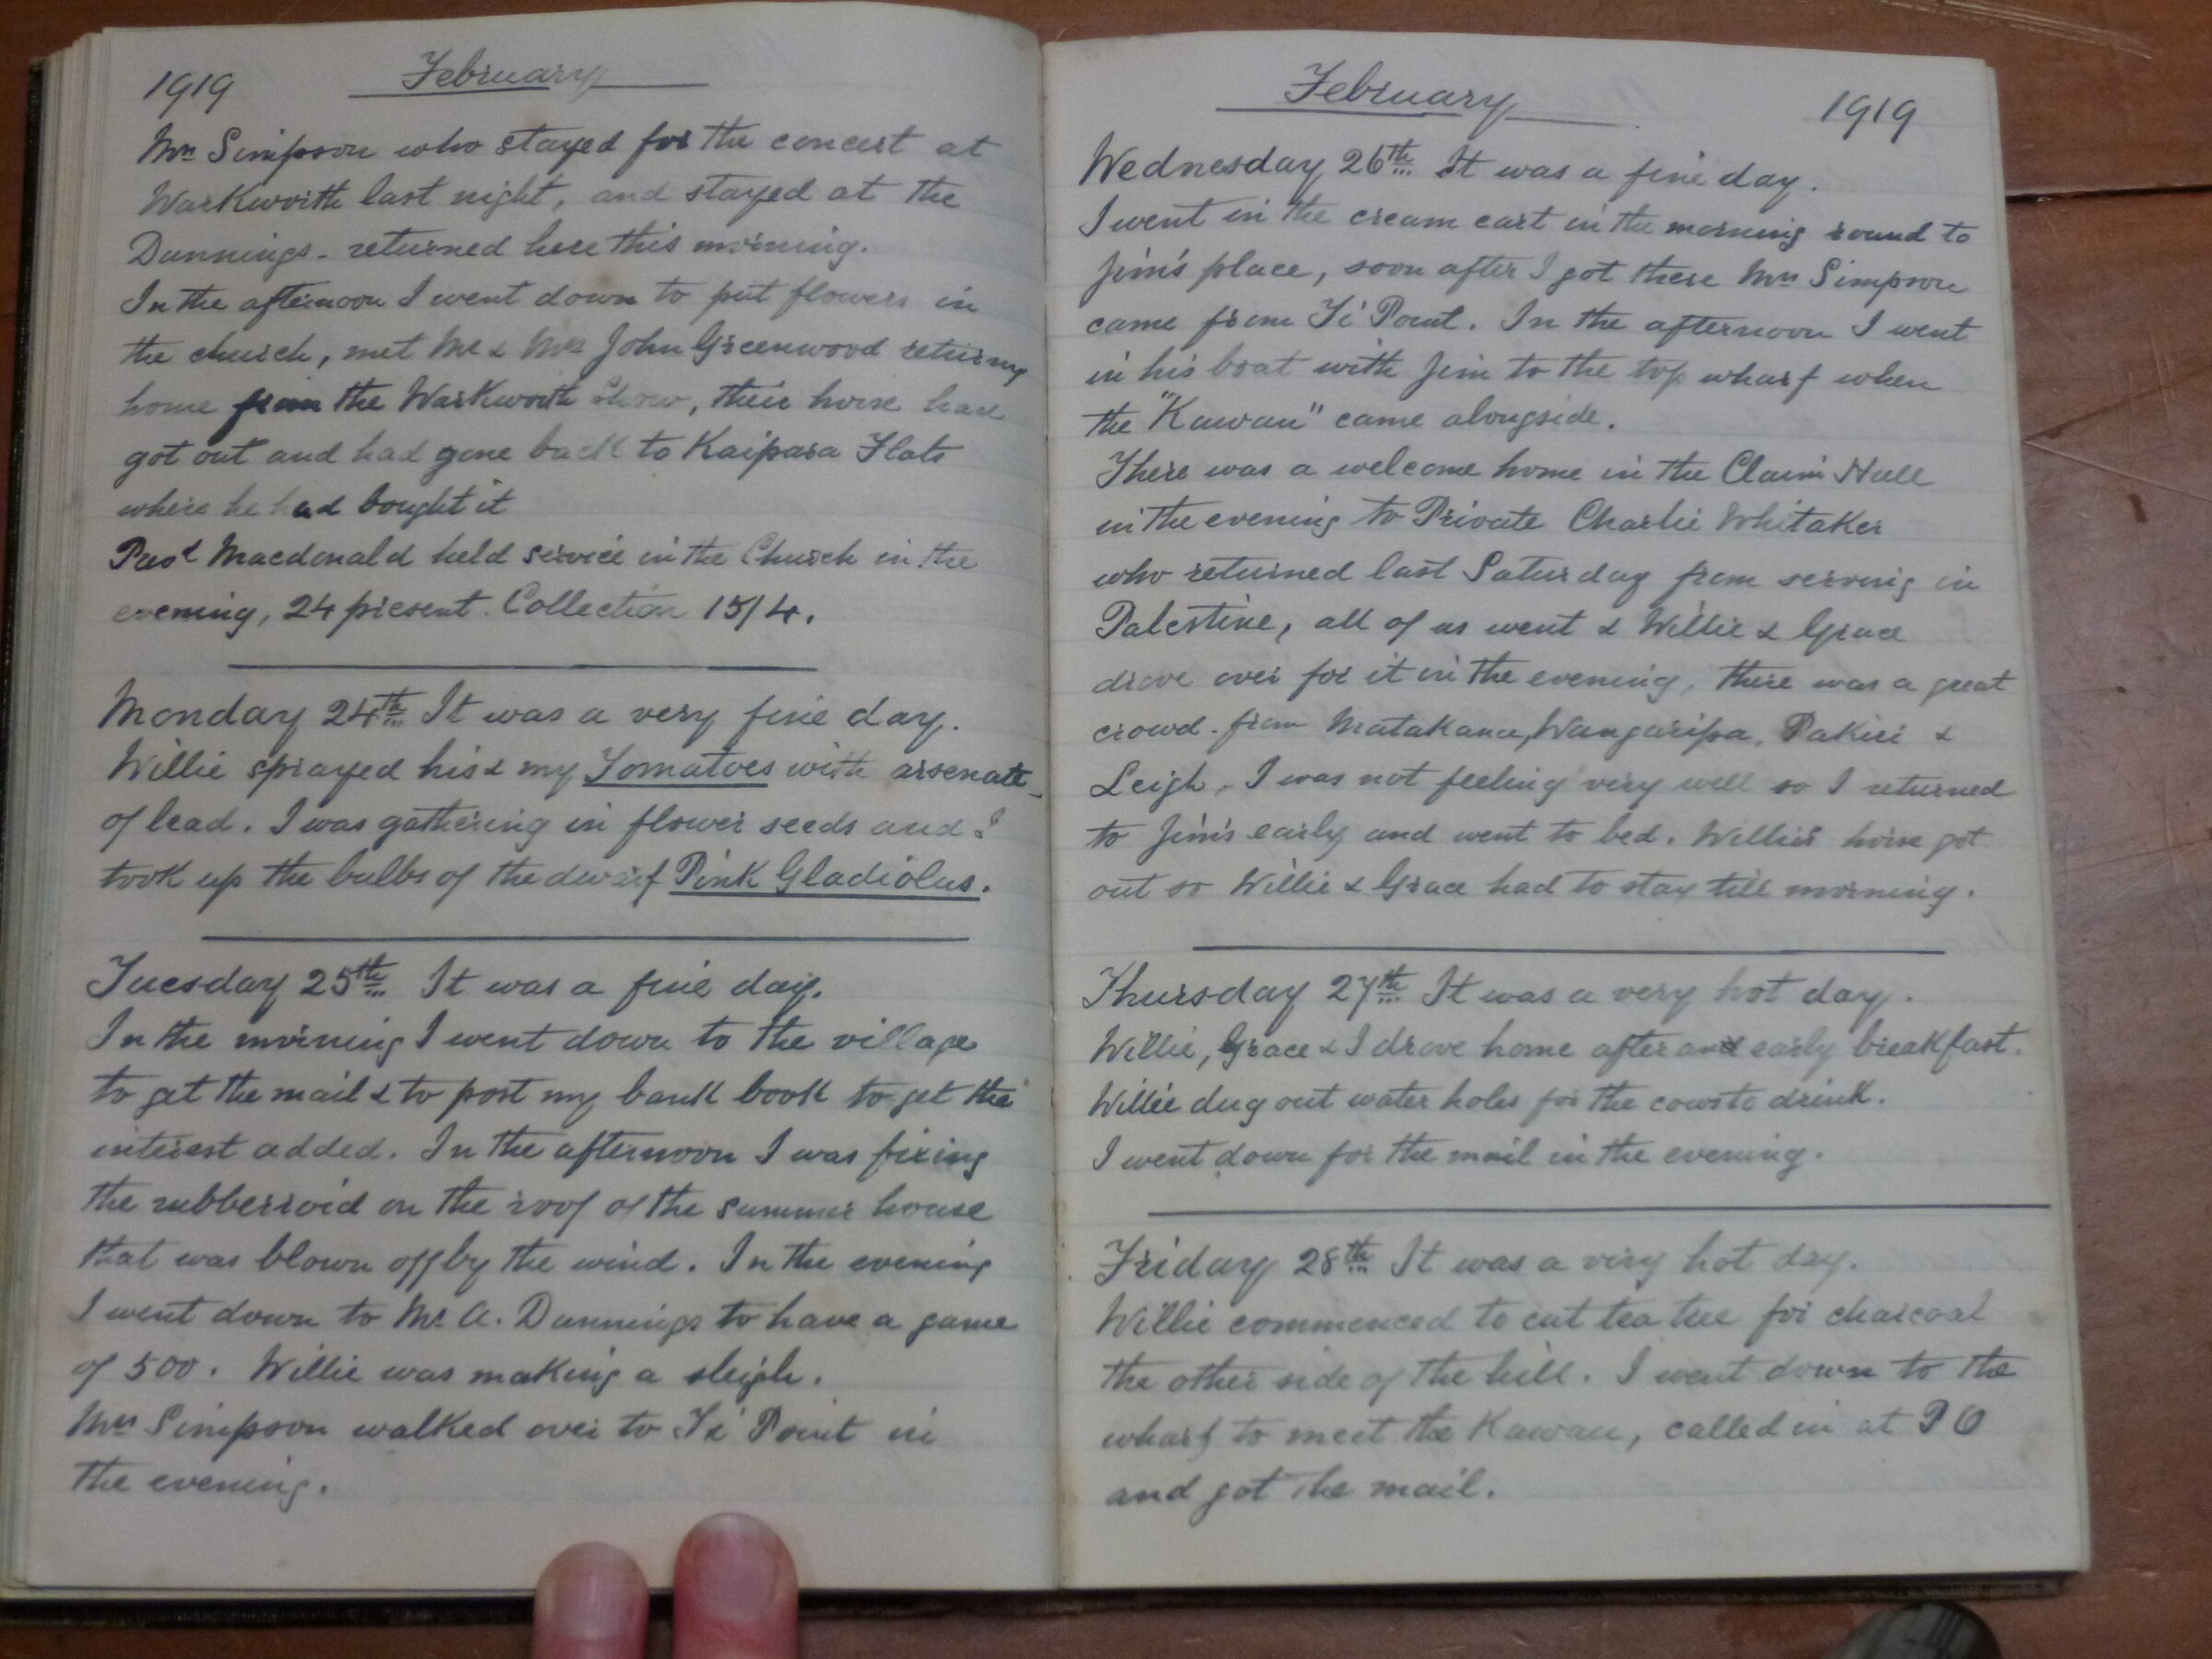 1919 February
Mrs Simpson who stayed for the concert at
Warkworth last night, and stayed at the
Dunnings - returned here this morning.
In the afternoon I went down to put flowers in
the church, met Mr & Mrs John Greenwood returning
home from the Warkworth Show, their horse had
got out and had gone back to Kaipara Flats
where he had bought it
Macdonald held service in the Church in the
evening, 24 present. Collection 15/4.
Monday 24th It was a very fine day.
Willie sprayed his & my Tomatoes with arsenate
of lead. I was gathering in flower seeds and I
took up the bulbs of the dwarf Pink Gladiolus.
Tuesday 25th It was a fine day.
In the morning I went down to the village
to get the mail & to post my bank book to get the
interest added. In the afternoon I was fixing
the rubberroid on the roof of the summer house
that was blown off by the wind. In the evening
I went down to Mr A. Dunnings to have a game
of 500. Willie was making a sleigh.
Mrs Simpson walked over to Ti Point in
the evening.
February 1919
Wednesday 26th It was a fine day.
I went in the cream cart in the morning round to
Jim's place, soon after I got there Mrs Simpson
came from Ti Point. In the afternoon I went
in his boat with Jim to the top wharf when
the "Kawau" came alongside.
There was a welcome home in the Hall
in the evening to Private Charlie Whitaker
who returned last Saturday from serving in
Palestine, all of us went & Willie & Grace
drove over for it in the evening, there was a great
crowd from Matakana, Wangaripa, Pakiri &
Leigh, I was not feeling very well so I returned
to Jim's early and went to bed. Willie's horse got
out so Willie & Grace had to stay till morning.
Thursday 27th It was a very hot day.
Willie, Grace & I drove home after an early breakfast.
Willie dug out water holes for the cows to drink.
I went down for the mail in the evening.
Friday 28th It was a very hot day.
Willie commenced to cut tea tree for charcoal
the other side of the hill. I went down to the
wharf to meet the Kawau, called in at P O
and got the mail.